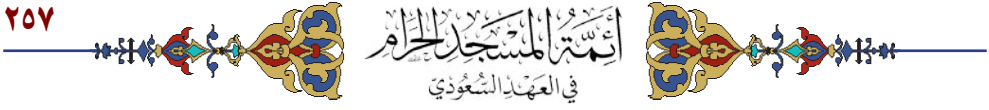 ٢٥٧
أَئِمَّةُ المَسْجِدِ الحَرَامِ
في العَهْدِ السُّعُودِيّ